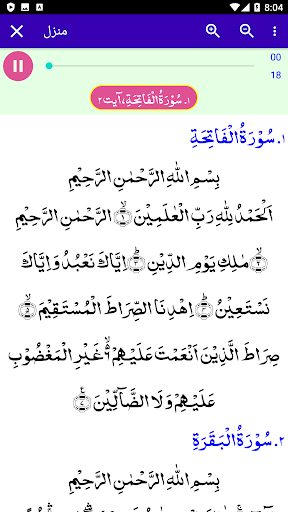 8:04
منزل
00
18
۱. سُوْرَةُ الْفَاتِحَةِ، آیت ۲
۱. سُوْرَةُ الْفَاتِحَةِ
بِسْمِ اللهِ الرَّحْمٰنِ الرَّحِيْمِ
اَلْحَمْدُ لِلّٰهِ رَبِّ الْعٰلَمِيْنَ ۝۱ الرَّحْمٰنِ الرَّحِيْمِ
۝۲ مٰلِكِ يَوْمِ الدِّيْنِ ۝۳ اِيَّاكَ نَعْبُدُ وَاِيَّاكَ
نَسْتَعِيْنُ ۝۴ اِهْدِنَا الصِّرَاطَ الْمُسْتَقِيْمَ ۝۵
صِرَاطَ الَّذِيْنَ اَنْعَمْتَ عَلَيْهِمْ ۝۶ غَيْرِ الْمَغْضُوْبِ
عَلَيْهِمْ وَلَا الضَّآلِّيْنَ ۝۷
۲. سُوْرَةُ الْبَقَرَةِ
بِسْمِ اللهِ الرَّحْمٰنِ الرَّحِيْمِ